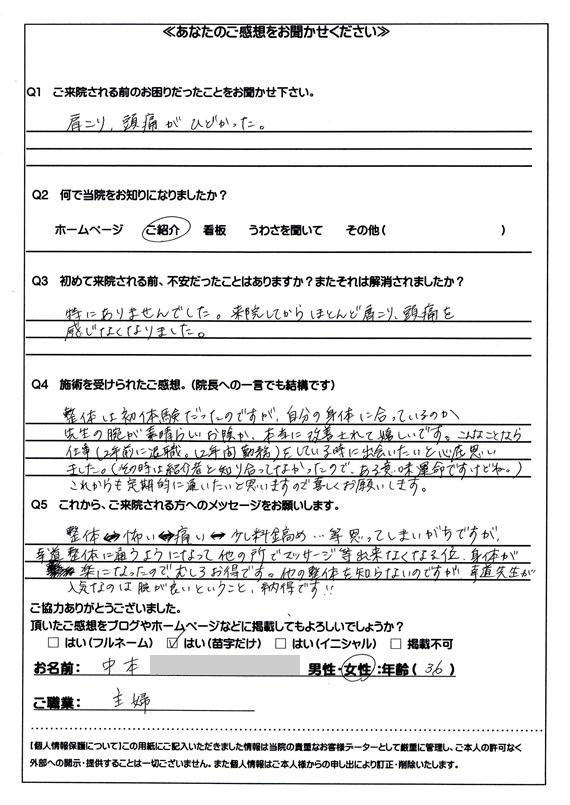 ≪あなたのご感想をお聞かせください≫
Q1 ご来院される前のお困りだったことをお聞かせ下さい。
肩こり、頭痛がひどかった。
Q2 何で当院をお知りになりましたか？
ホームページ ご紹介 看板 うわさを聞いて その他( )
Q3 初めて来院される前、不安だったことはありますか？またそれは解消されましたか？
特にありませんでした。来院してからほとんど肩こり、頭痛を
感じなくなりました。
Q4 施術を受けられたご感想。（院長への一言でも結構です）
整体は初体験だったのですが、自分の身体に合っているのか
先生の腕が素晴らしいお陰か、本当に改善されて嬉しいです。こんなことなら
仕事(2年前に退職。12年間勤務)をしている時に出会いたいと心底思い
ました。(その時は紹介者と知り合ってなかったので、ある意味運命ですけどね。)
これからも定期的に通いたいと思いますので宜しくお願いします。
Q5 これから、ご来院される方へのメッセージをお願いします。
整体⇔怖い⇔痛い⇔少し料金高め…等思ってしまいがちですが、
幸道整体に通うようになって他の所でマッサージ等出来なくなる位、身体が
楽になったので、むしろお得です。他の整体を知らないのですが幸道先生が
人気なのは腕が良いということ、納得です!!
ご協力ありがとうございました。
頂いたご感想をブログやホームページなどに掲載してもよろしいでしょうか？
□ はい（フルネーム） ☑ はい（苗字だけ） □ はい（イニシャル） □ 掲載不可
お名前： 中本 男性・女性：年齢( 36 )
ご職業： 主婦
【個人情報保護について】この用紙にご記入いただきました情報は当院の貴重なお客様データーとして厳重に管理し、ご本人の許可なく
外部への開示・提供することは一切ございません。また個人情報はご本人様からの申し出により訂正・削除いたします。